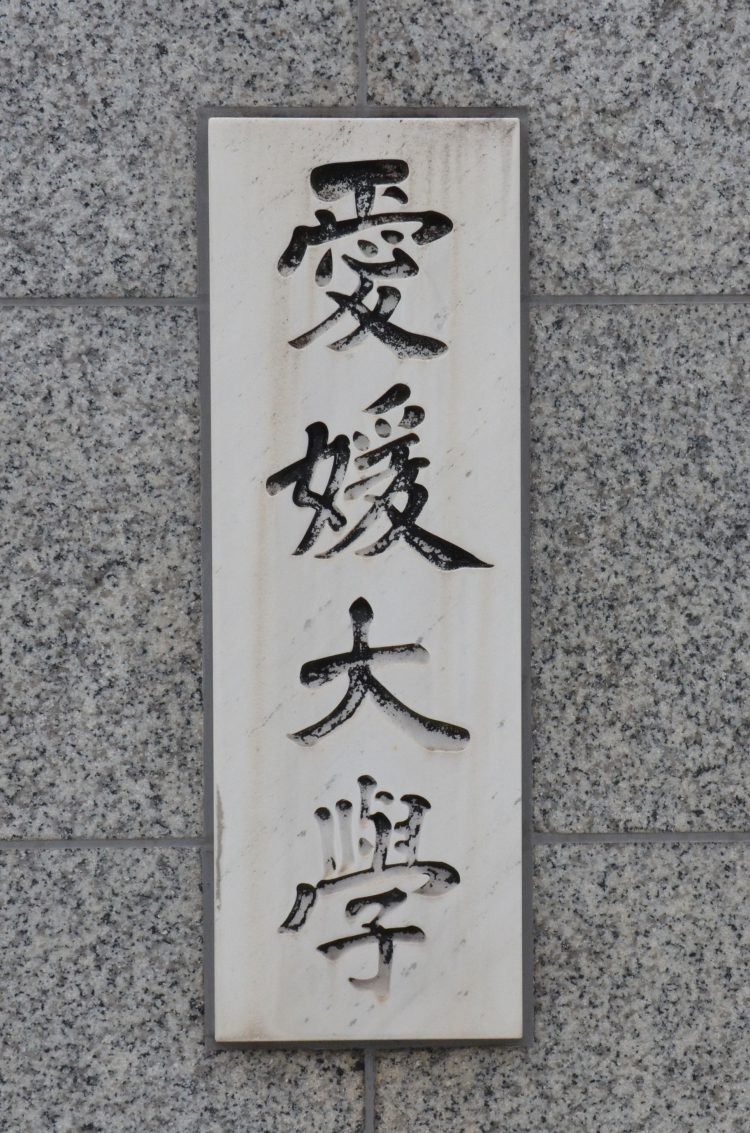 愛媛大學